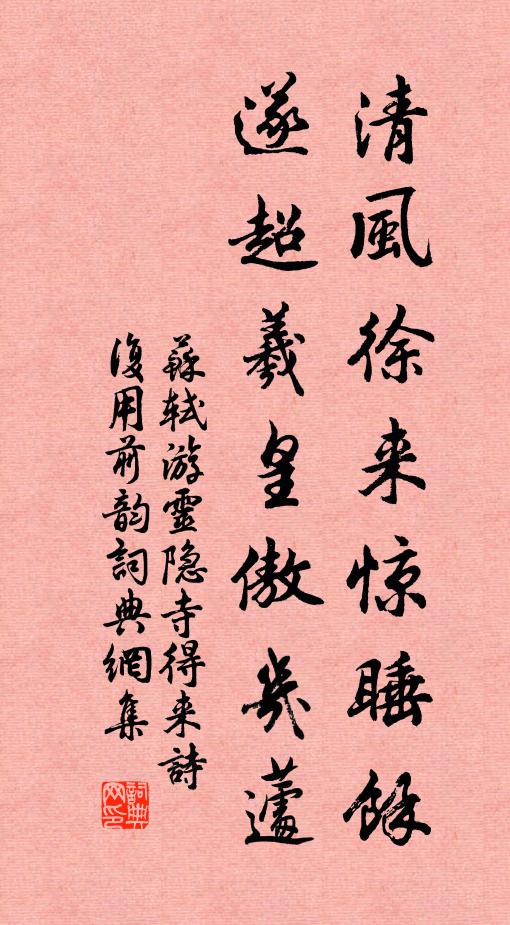 清風徐来惊睡餘
遂超羲皇傲幾蘧
蘇軾游靈隐寺得来詩
復用前韵詞典網集
詞典网印